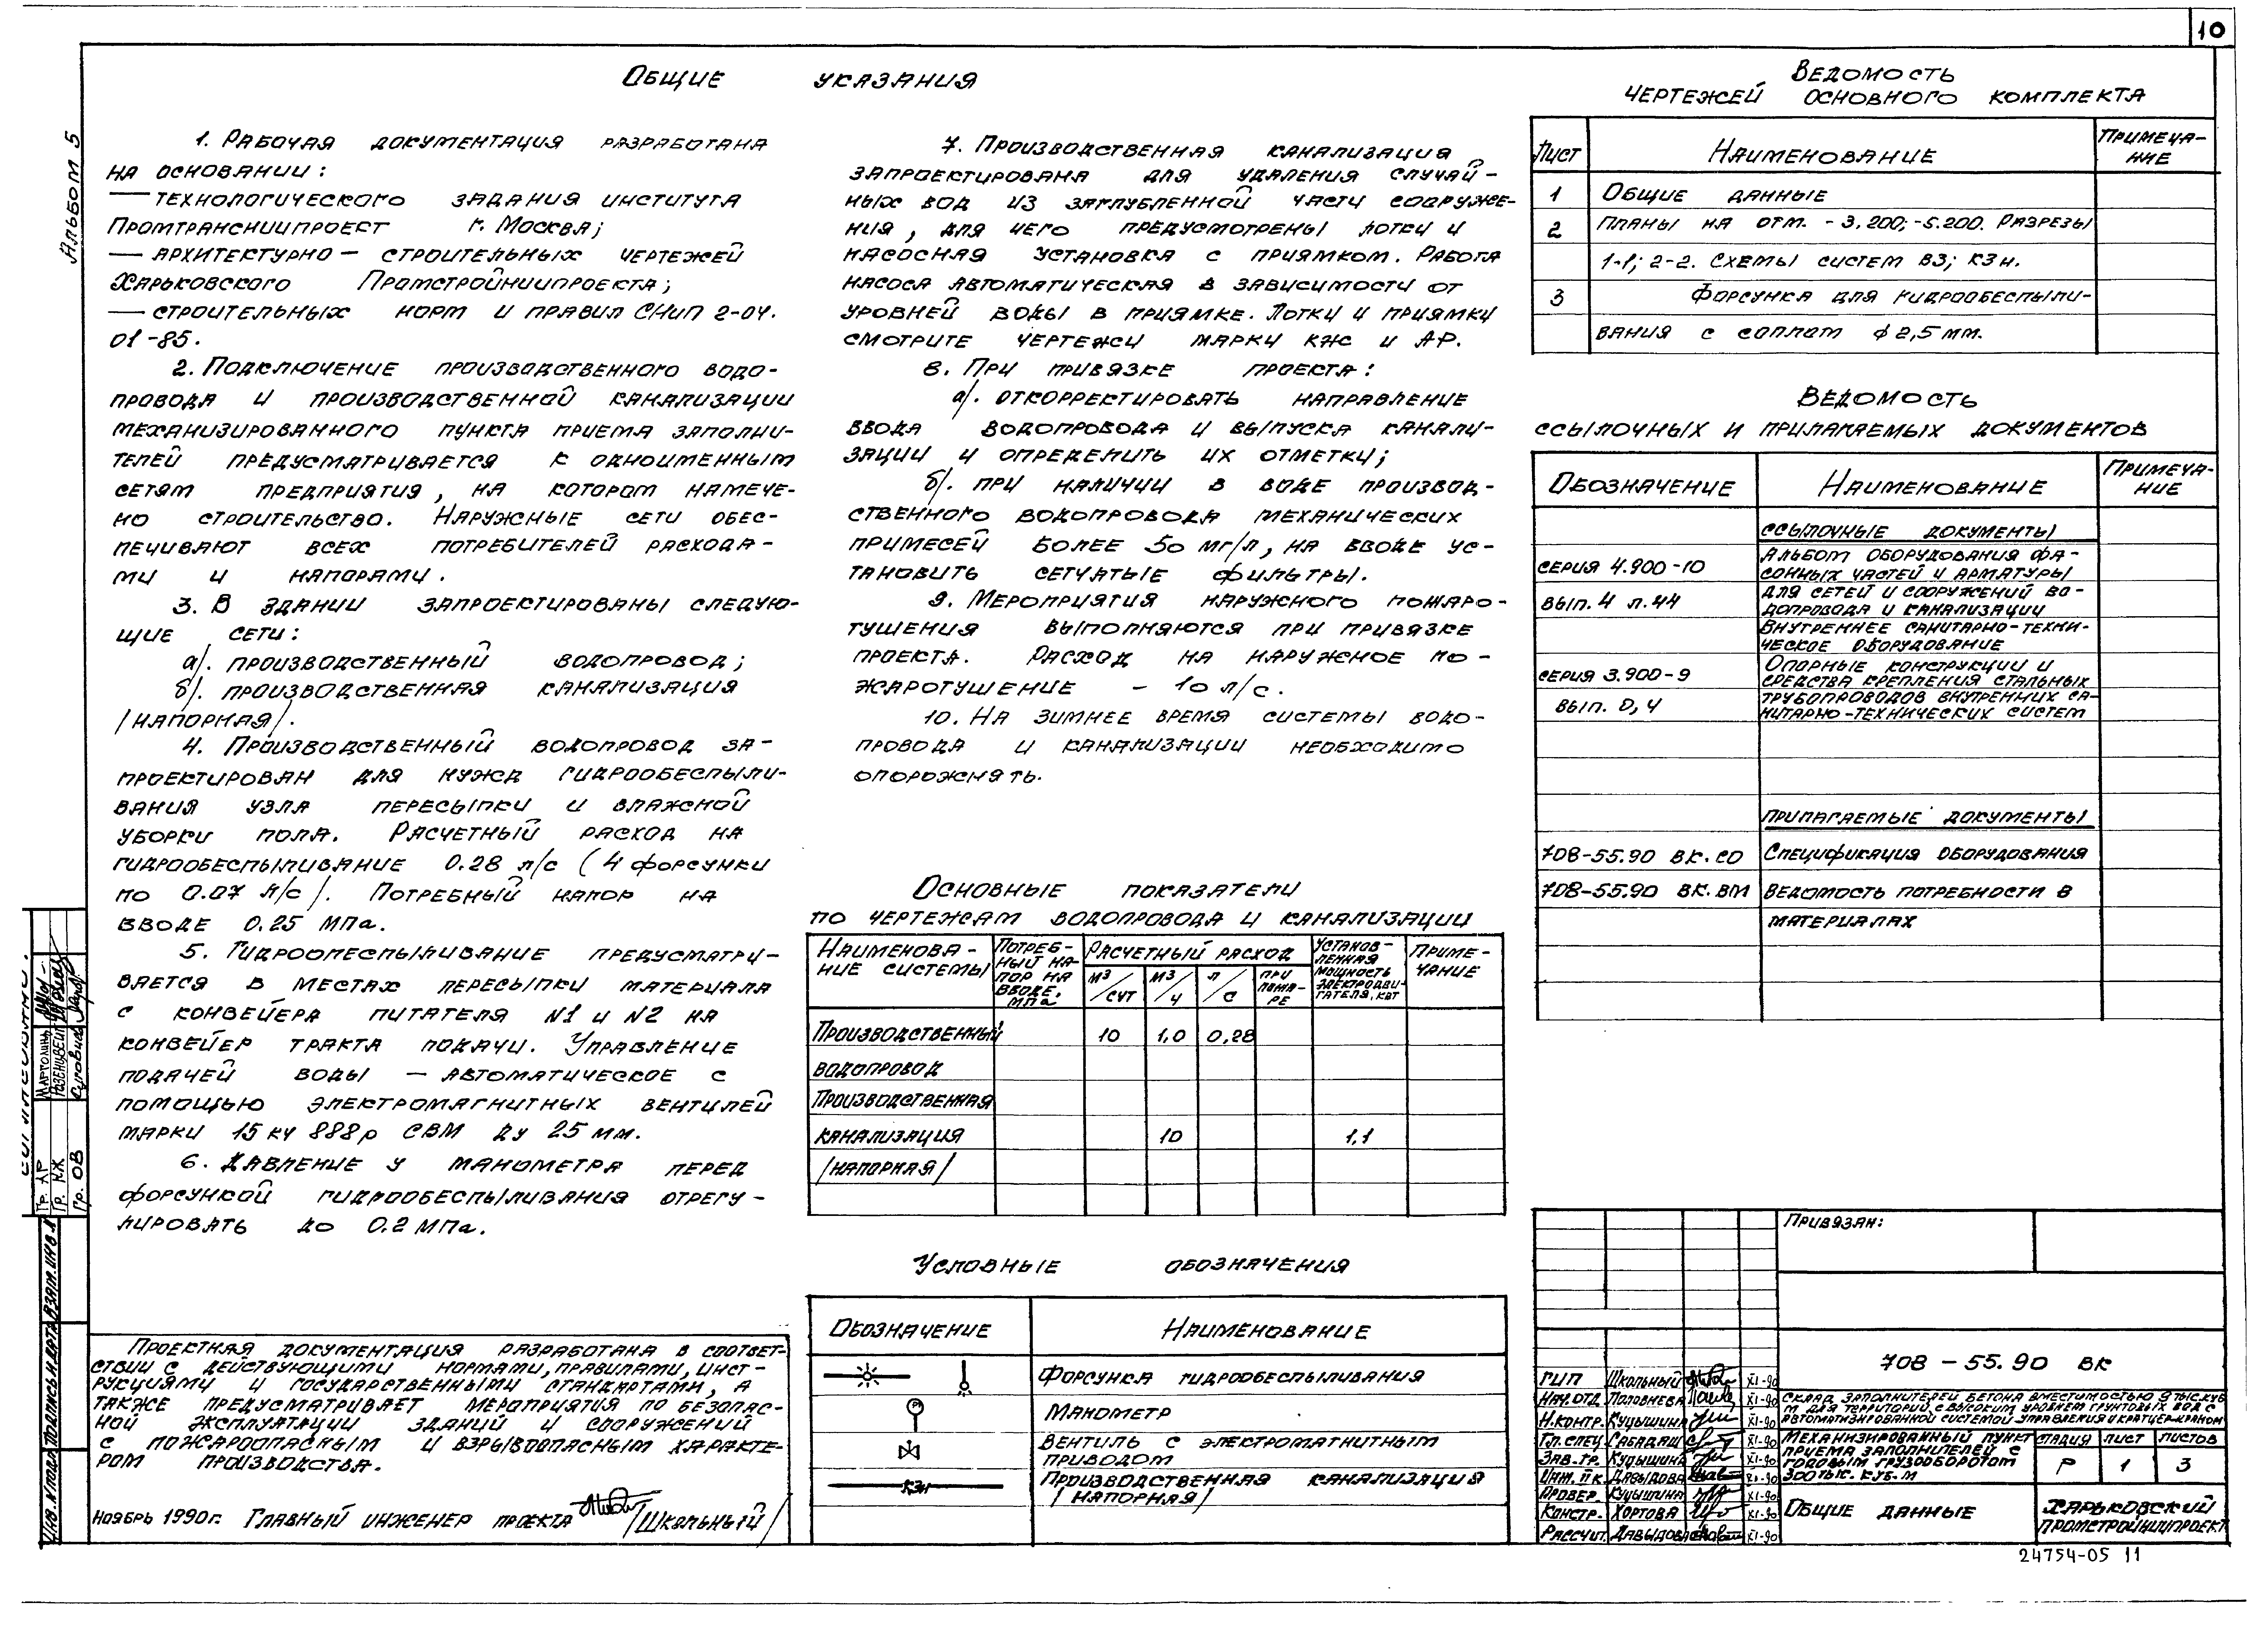 10
Альбом 5
Общие указания
1. Рабочая документация разработана
на основании:
— технологического задания института
Промтрансниипроект г. Москва;
— архитектурно — строительных чертежей
Харьковского Промстройниипроекта;
— строительных норм и правил СНиП 2-04.
01-85.
2. Подключение производственного водо-
провода и производственной канализации
механизированного пункта приема заполни-
телей предусматривается к одноименным
сетям предприятия, на котором намече-
но строительство. Наружные сети обес-
печивают всех потребителей расхода-
ми и напорами.
3. В здании запроектированы следую-
щие сети:
а/. производственный водопровод;
б/. производственная канализация
/напорная/.
4. Производственный водопровод за-
проектирован для нужд гидрообеспыли-
вания узла пересыпки и влажной
уборки пола. Расчетный расход на
гидрообеспыливание 0.28 л/с (4 форсунки
по 0.07 л/с/. Потребный напор на
вводе 0.25 МПа.
5. Гидрообеспыливание предусматри-
вается в местах пересыпки материала
с конвейера питателя N1 и N2 на
конвейер тракта подачи. Управление
подачей воды — автоматическое с
помощью электромагнитных вентилей
марки 15 кч 888р СВМ ду 25 мм.
6. Давление у манометра перед
форсункой гидрообеспыливания отрегу-
лировать до 0.2 МПа.
Проектная документация разработана в соответ-
ствии с действующими нормами, правилами, инст-
рукциями и государственными стандартами, а
также предусматривает мероприятия по безопас-
ной эксплуатации зданий и сооружений
с пожароопасным и взрывоопасным характе-
ром производства.
Ноябрь 1990г. Главный инженер проекта /Школьный/
7. Производственная канализация
запроектирована для удаления случай-
ных вод из заглубленной части сооруже-
ния, для чего предусмотрены лотки и
насосная установка с приямком. Работа
насоса автоматическая в зависимости от
уровней воды в приямке. Лотки и приямки
смотрите чертежи марки КЖ и АР.
8. При привязке проекта:
а/. откорректировать направление
ввода водопровода и выпуска канали-
зации и определить их отметки;
б/. при наличии в воде производ-
ственного водопровода механических
примесей более 50 мг/л, на вводе ус-
тановить сетчатые фильтры.
9. Мероприятия наружного пожаро-
тушения выполняются при привязке
проекта. Расход на наружное по-
жаротушение — 10 л/с.
10. На зимнее время системы водо-
провода и канализации необходимо
опорожнять.
Основные показатели
по чертежам водопровода и канализации
Наименова-ние системы Потреб-ный на-пор на вводе, МПа Расчетный расход м3/сут м3/ч л/с при пожа-ре Установ-ленная мощность электродви-гателя, кВт Приме-чание
Производственный 10 1,0 0,28
водопровод
Производственная
канализация 10 1,1
/напорная/
Условные обозначения
Обозначение Наименование
Форсунка гидрообеспыливания
Манометр
Вентиль с электромагнитным
приводом
КЗн Производственная канализация
/напорная/
Ведомость
чертежей основного комплекта
Лист Наименование Примеча-ние
1 Общие данные
2 Планы на отм. -3.200; -5.200. Разрезы
1-1; 2-2. Схемы систем В3; К3н.
3 Форсунка для гидрообеспыли-
вания с соплом ф 2,5 мм.
Ведомость
ссылочных и прилагаемых документов
Обозначение Наименование Примеча-ние
Ссылочные документы
Серия 4.900-10 Альбом оборудования фа-
сонных частей и арматуры
вып. 4 л. 44 для сетей и сооружений во-
допровода и канализации
Внутреннее санитарно-техни-
ческое оборудование
Серия 3.900-9 Опорные конструкции и
средства крепления стальных
вып. 0,4 трубопроводов внутренних са-
нитарно-технических систем
Прилагаемые документы
708-55.90 ВК.СО Спецификация оборудования
708-55.90 ВК.ВМ Ведомость потребности в
материалах
Привязан:
708-55.90 ВК
ГИП Школьный XI-90
Нач.отд. Половнева XI-90
Н.контр. Куцышина XI-90
Гл.спец. Сабадаш XI-90
Зав.гр. Куцышина XI-90
Инж. IIк. Давыдова XI-90
Провер. Куцышина XI-90
Констр. Хортова XI-90
Рассчит. Давыдова XI-90
Склад заполнителей бетона вместимостью 9 тыс.куб
м для территорий с высоким уровнем грунтовых вод с
автоматизированной системой управления и кратцер-краном
Механизированный пункт
приема заполнителей с
годовым грузооборотом
300 тыс. куб.м
Стадия Лист Листов
Р 1 3
Общие данные
Харьковский
Промстройниипроект
24754-05 11
Согласовано:
Гр. АР Мартолины
Гр. КЖ Розенцвейг
Гр. ОВ Суровица
Инв. N подл. Подпись и дата Взам. инв. N